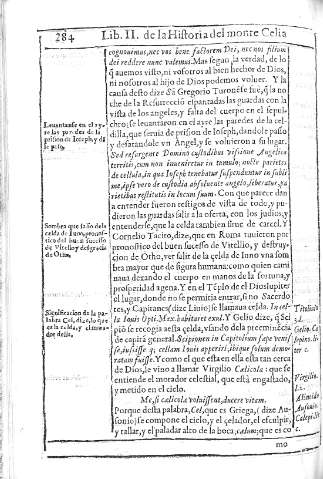 284 Lib. II. de la Historia del monte Celia
cognouimus, nec vos hunc factorem Dei, nec nos filium
dei reddere nunc valemus. Mas segun la verdad, de lo
q̄ auemos visto, ni vosotros al bien hechor de Dios,
ni nosotros al hijo de Dios podemos voluer. Y la
causa desto dize Sā Gregorio Turonēse fué, q̄ la no
che de la Resurrecciō espantadas las guardas con la
vista de los angeles, y falta del cuerpo en el sepul-
chro; se leuantaron en el ayre las paredes de la cel-
dilla, que seruia de prision de Ioseph, dandole passo
y desatandole vn Angel, y se voluieron a su lugar.
Sed resurgente Domino custodibus visione Angelica
territis, cum non inueniretur in tumulo, nocte parietes
de cellula, in qua Ioseph tenebatur suspenduntur in subli-
me, ipse vero de custodia absoluente angelo, liberatur, pa
rietibus restitutis in locum suum. Con que parece dan
a entender fueron testigos de vista de todo, y pu-
dieron las guardas salir a la oferta, con los judios, y
entenderse, que la celda tambien sirue de carcel. Y
Cornelio Tacito, dize, que en Roma tuuieron por
pronostico del buen sucesso de Vitellio, y destruy-
cion de Otho, ver salir de la celda de Iuno vna som
bra mayor que de figura humana: como quien cami
naua dexando el cuerpo en manos de la fortuna, y
prosperidad agena. Y en el Tēplo de el Dios Iupiter
el lugar, donde no se permitia entrar, si no Sacerdo
tes, y Capitanes (dize Liuio) se llamaua celda. In cel-
la Iouis Opt. Max. habitaret exul. Y Gelio dize, q̄ Sci
piō se recogia a esta çelda, vsando dela preeminēcia
de capitā general. Scipionem in Capitolium sæpe venis
se, iussisse q; cellam Iouis apperiri, ibique solum demo-
ratum fuisse. Y como el que esta en ella esta tan cerca
de Dios, le vino a llamar Virgilio Cælicola: que se
entiende el morador celestial, que està engastado,
y metido en el cielo.
Me, si cælicolæ voluissent, ducere vitam.
Porque desta palabra, Cel, que es Griega, (dize Au-
sonio) se compone el cielo, y el çelador, el esculpir,
y tallar, y el paladar alto de la boca, cælum; que es co
mo
Leuantarse en el ay-
re las paredes de la
prision de Ioseph, y de
Sombra que salio de la
celda de Iuno, pronos-
tico del buen sucesso
de Vitelio y desgracia
de Otho.
Significacion de la pa-
labra Cel, de
Titoliuio
Gelio.
Virgilio.
Ausonio.